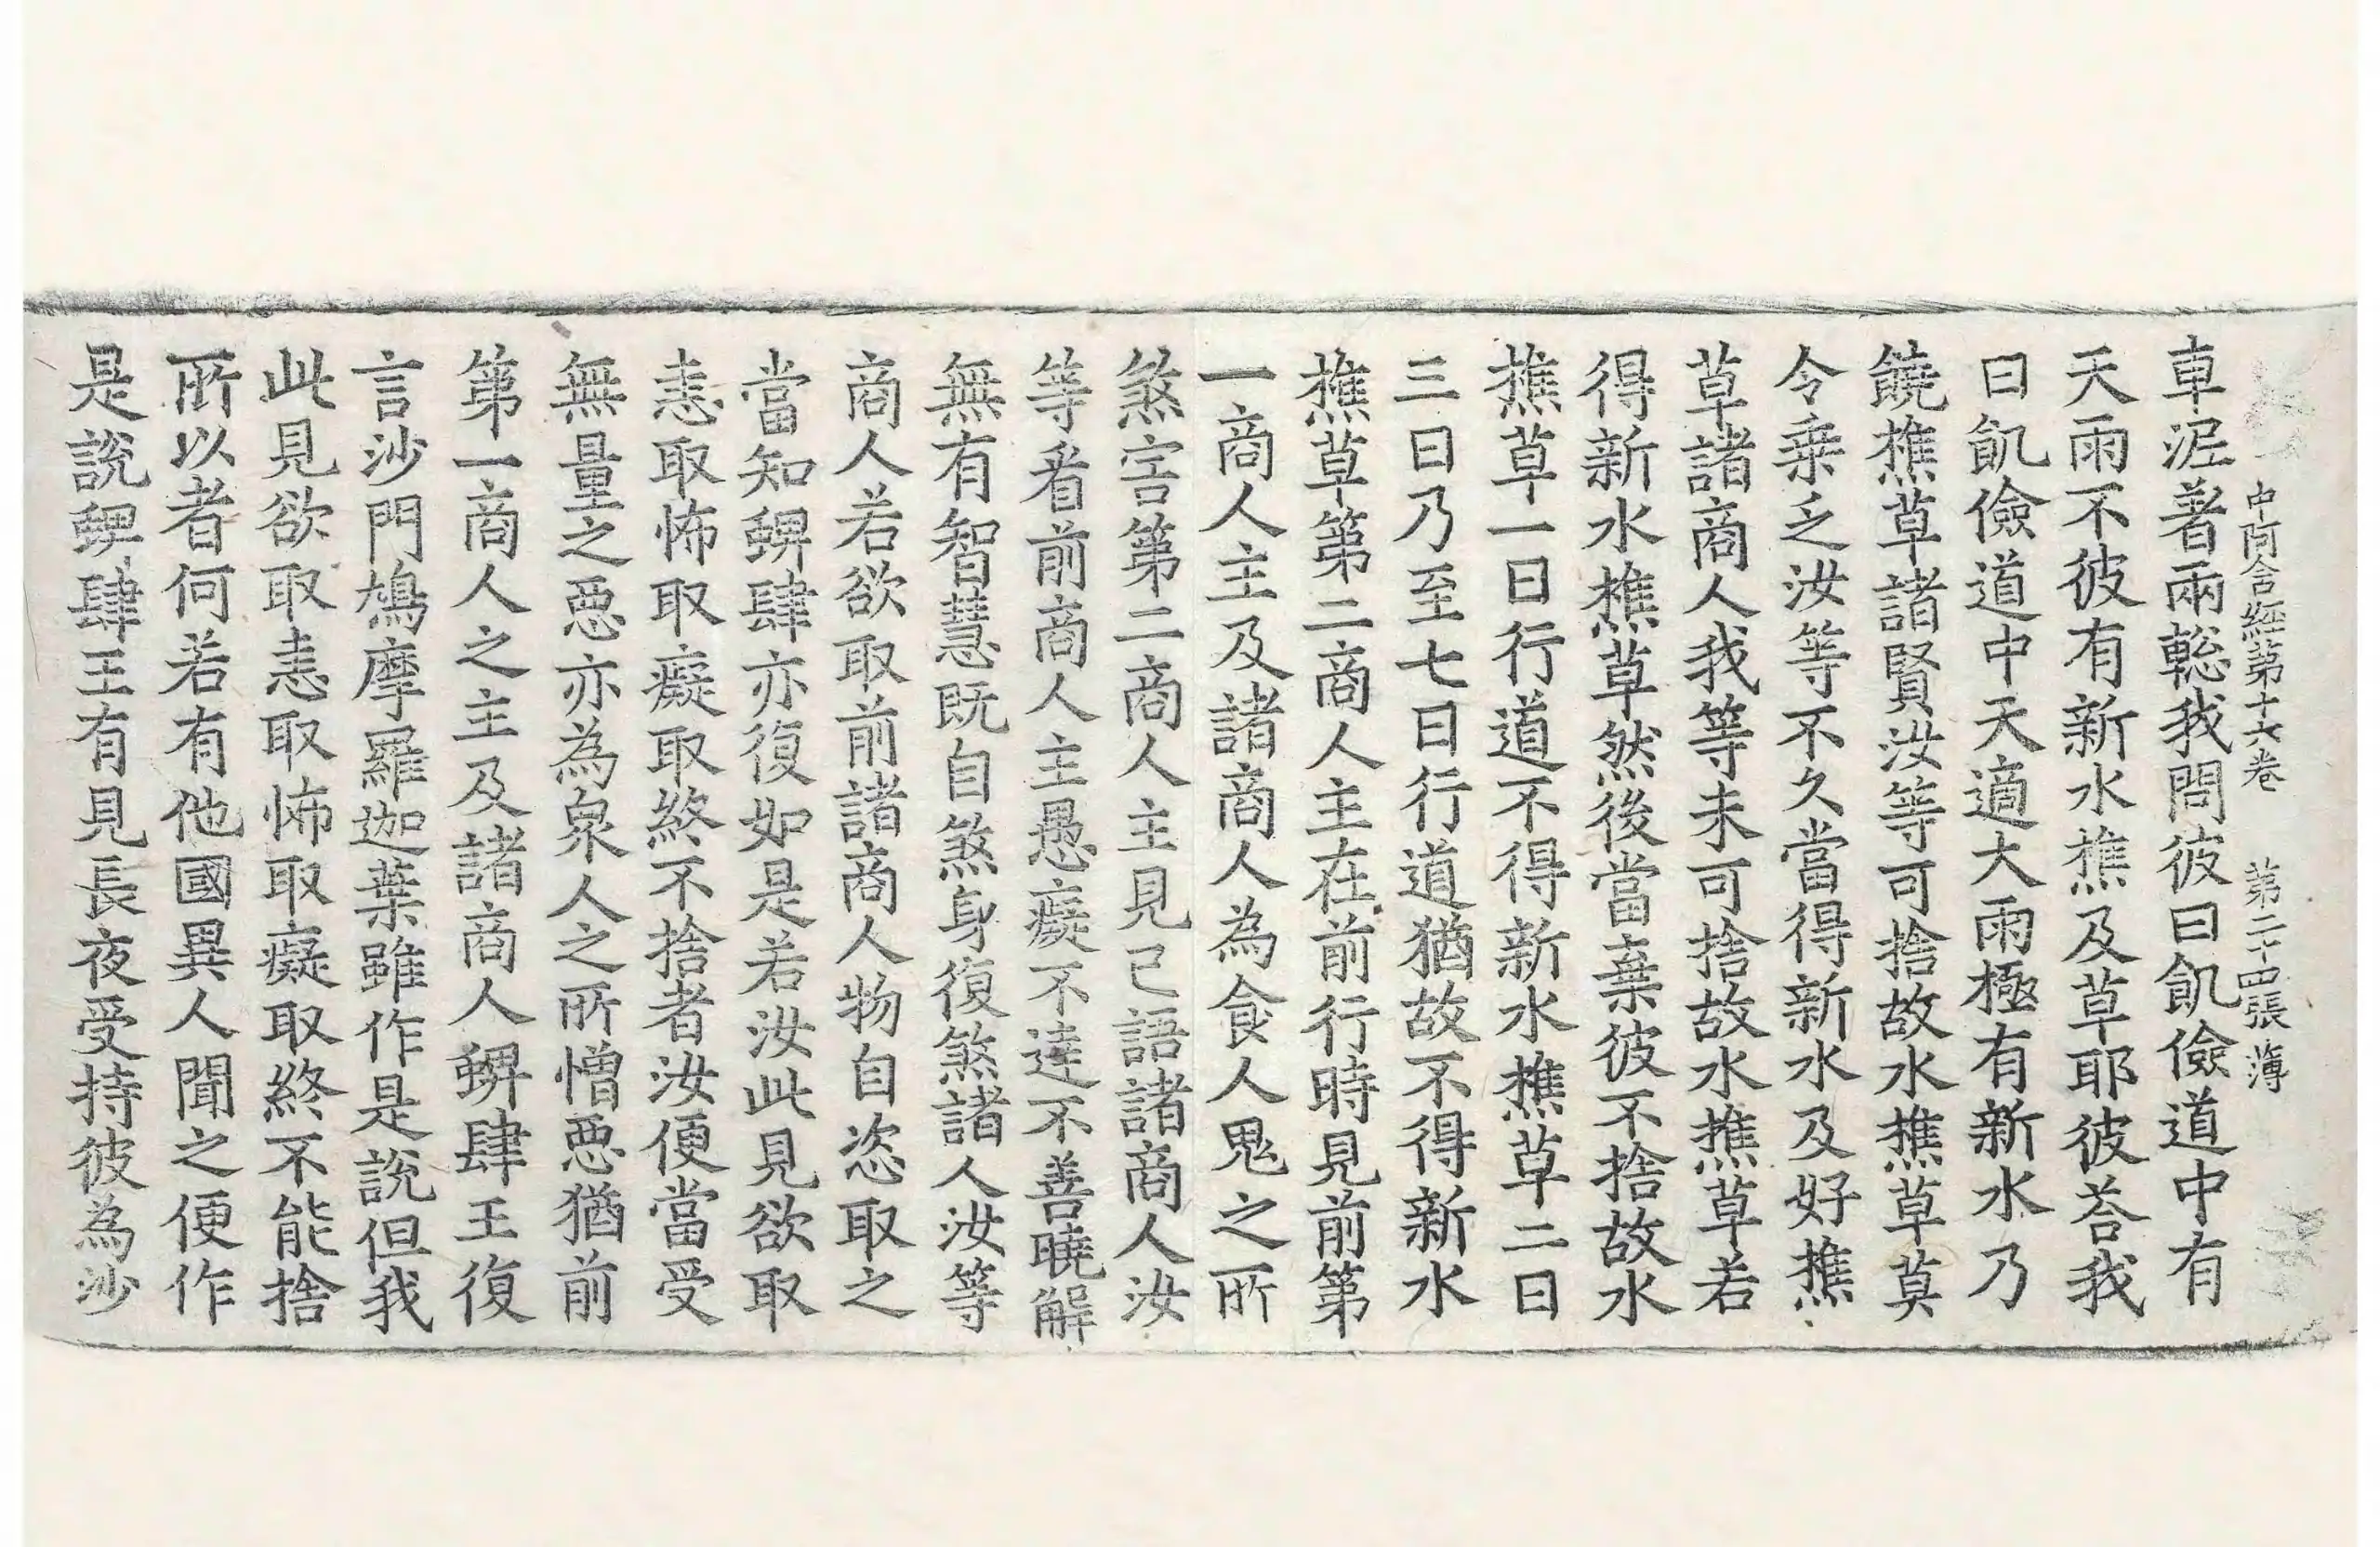 中阿含經第十六卷 第二十四張 薄
車泥著兩䡯我問彼曰飢儉道中有
天雨不彼有新水樵及草耶彼荅我
曰飢儉道中天適大雨極有新水乃
饒樵草諸賢汝等可捨故水樵草莫
令乗乏汝等不久當得新水及好樵
草諸商人我等未可捨故水樵草若
得新水樵草然後當棄彼不捨故水
樵草一日行道不得新水樵草二日
三日乃至七日行道猶故不得新水
樵草第二商人主在前行時見前第
一商人主及諸商人為食人鬼之所
煞害第二商人主見已語諸商人汝
等看前商人主愚癡不達不善曉解
無有智慧既自煞身復煞諸人汝等
商人若欲取前諸商人物自恣取之
當知蜱肆亦復如是若汝此見欲取
恚取怖取癡取終不捨者汝便當受
無量之惡亦為衆人之所憎惡猶前
第一商人之主及諸商人蜱肆王復
言沙門鳩摩羅迦葉雖作是說但我
此見欲取恚取怖取癡取終不能捨
所以者何若有他國異人聞之便作
是說蜱肆王有見長夜受持彼為沙